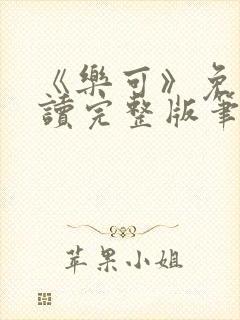 《樂可》免
讀完整版筆
苹果小姐